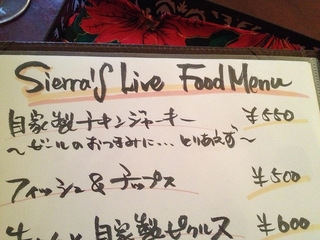 Sierra's Live Food Menu
自家製チキンジャーキー ¥550
〜ビールのおつまみに…とりあえず〜
フィッシュ&チップス ¥500
自家製ピクルス ¥600